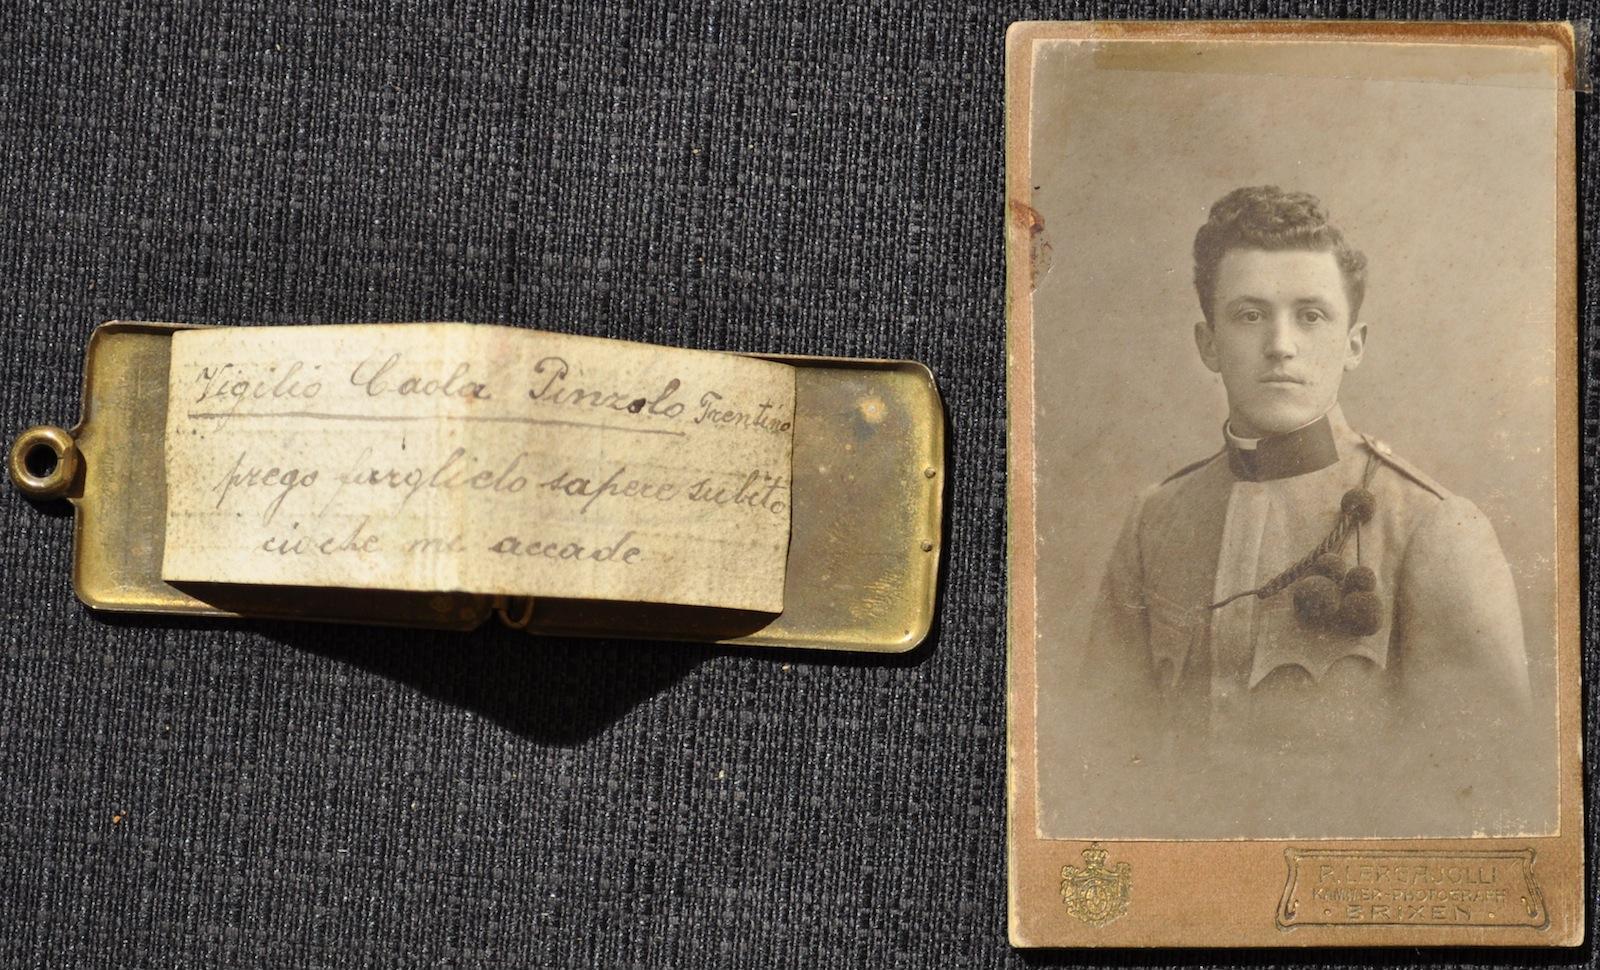 Vigilio Caola Pinzolo Trentino
prego farglielo sapere subito
ciò che mi accade
R. LERGAJOLLI
KAMMER-PHOTOGRAPH
· BRIXEN ·